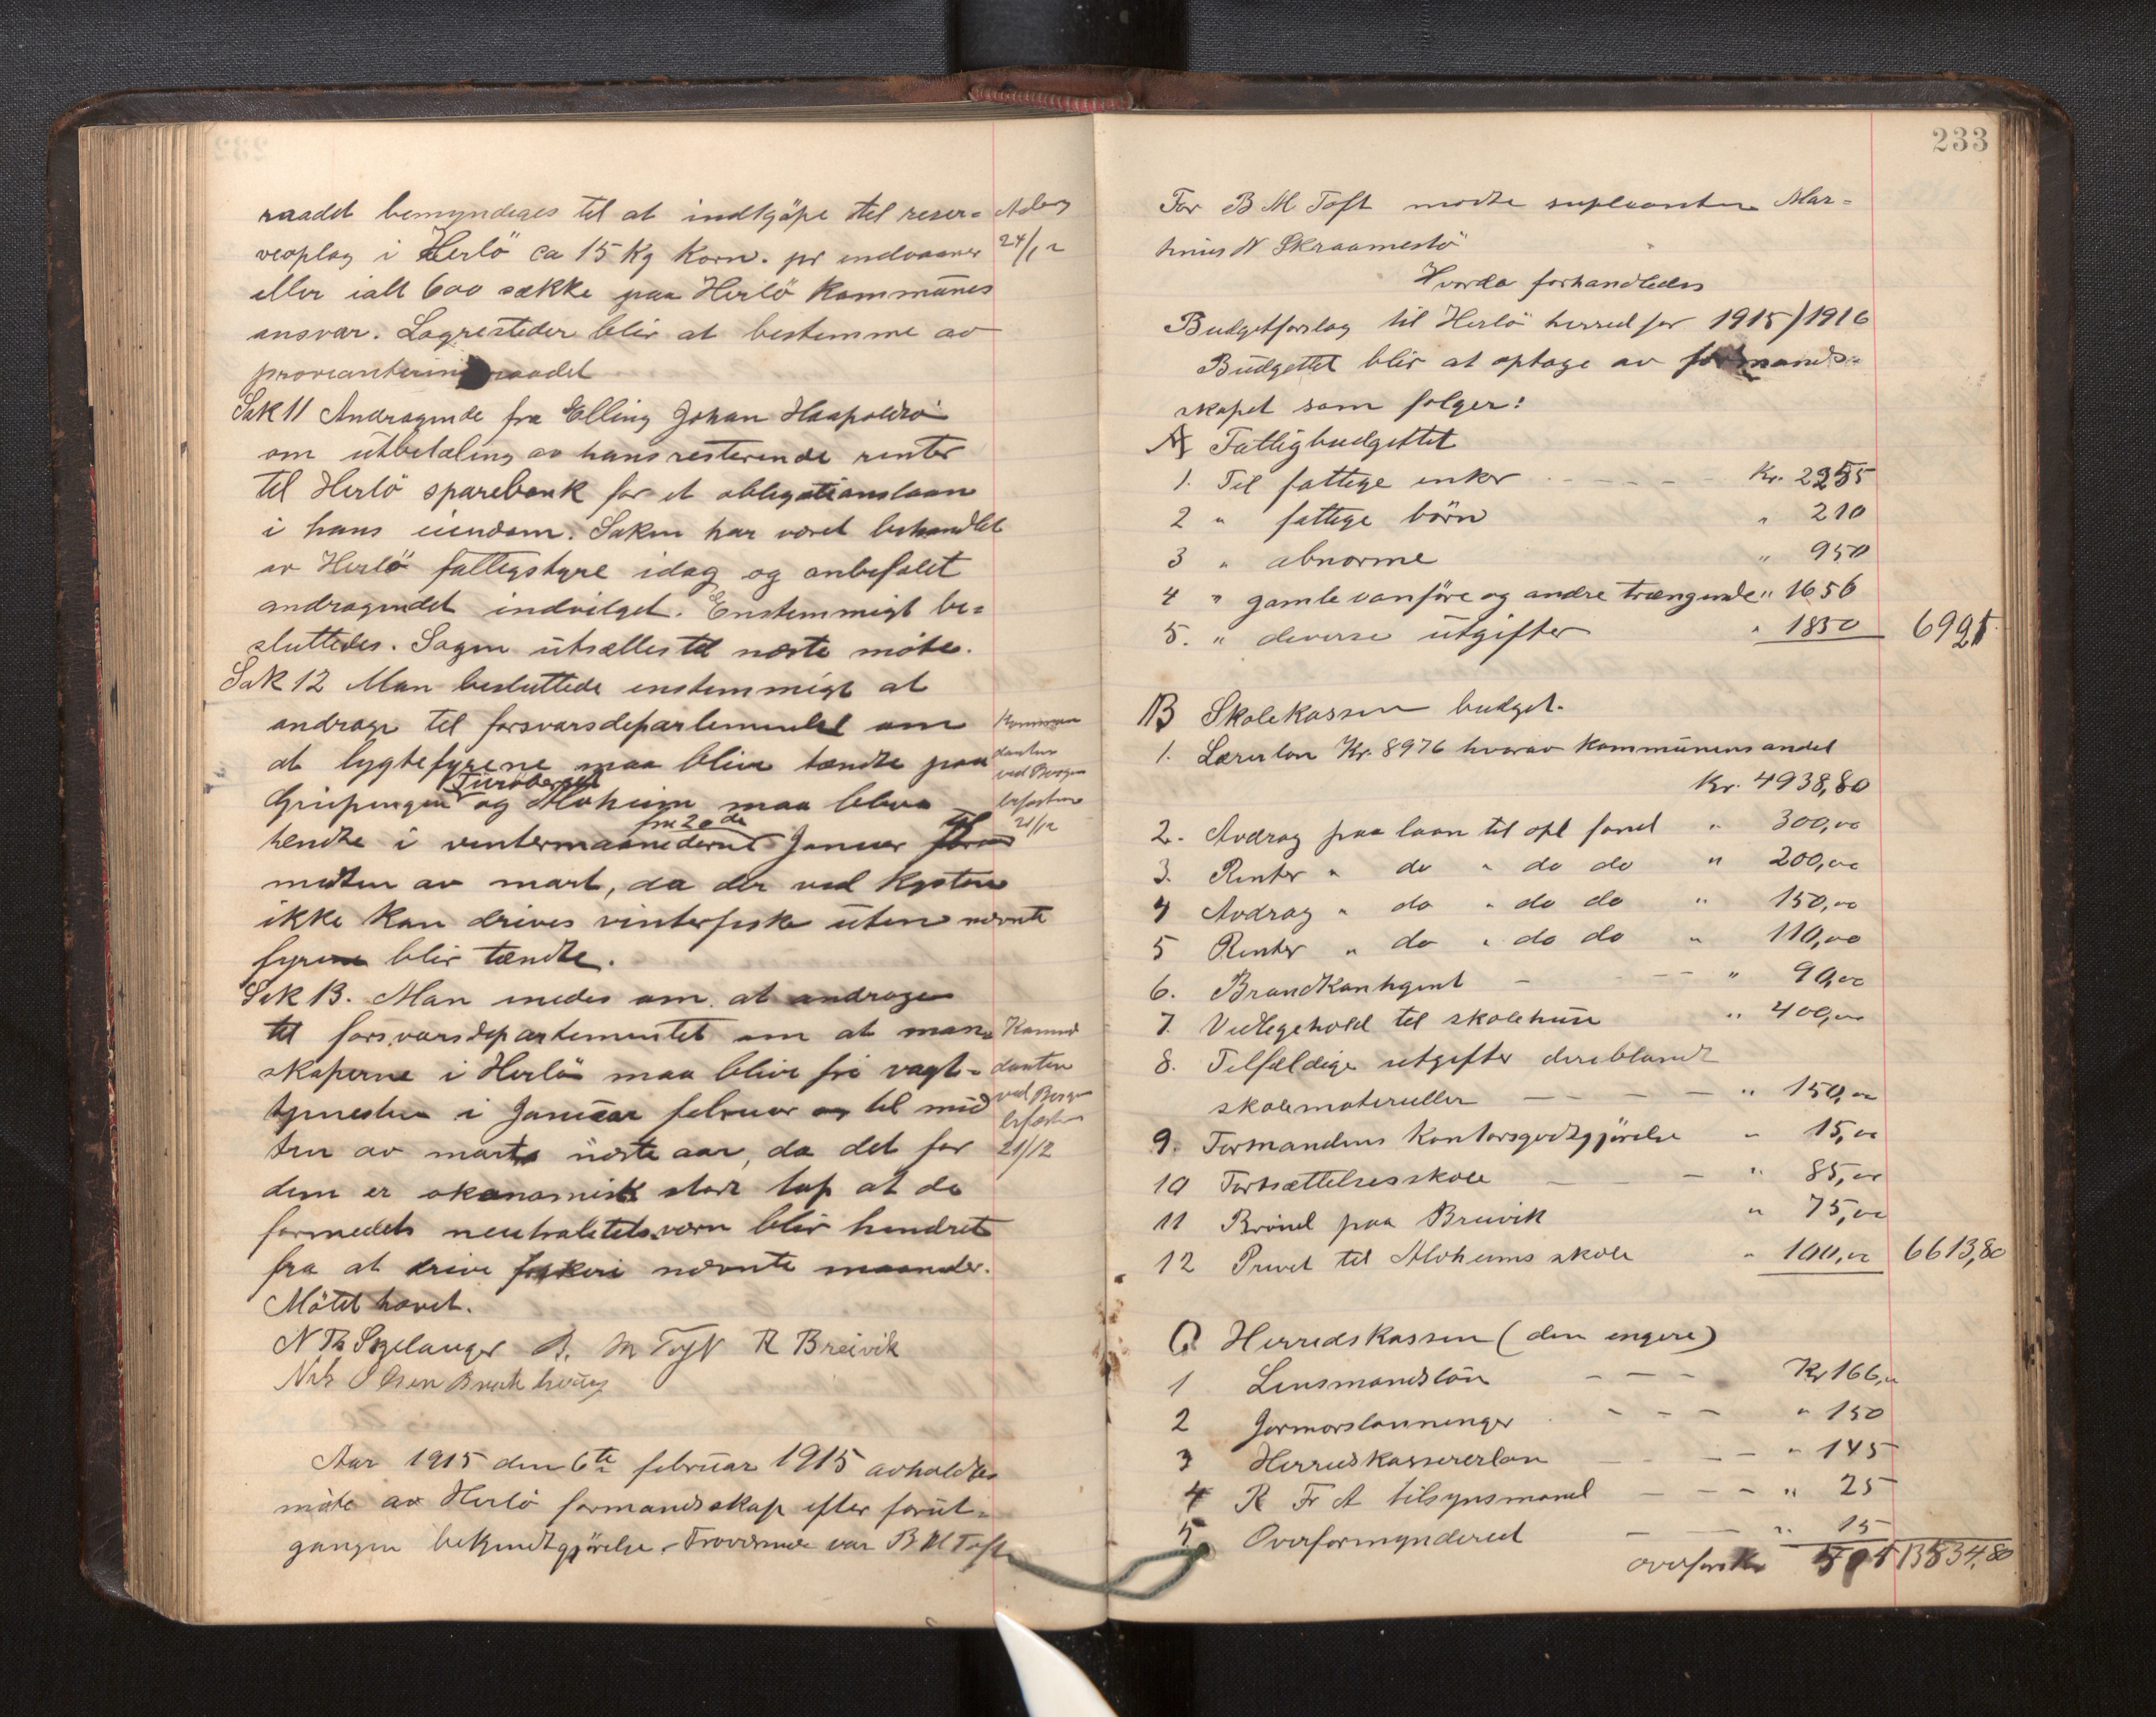 raadet bemyndiges til at indkjöpe til reser-
veoplag i Herlö ca 15 Kg Korn. pr indvaaner
24/12
eller ialt 600 sække paa Herlö Kommunes
ansvar. Lagresteder blir at bestemme av
provianteringsraadet
Sak 11 Andragende fra Elling Johan
om utbetaling av hans resterende renter
til Herlö sparebank for et obligationslaan
i hans eiendom. Saken har været behandlet
av Herlö fattigstyre idag og anbefalet
andragendet indvilget. Enstemmigt be-
sluttedes. Sagen utsættes til næste möte.
Sak 12 Man besluttede enstemmigt at
andrage til forsvarsdepartementet om
at lygtefyrene maa blive tændte paa
og Aloheim maa blive
tendte i vintermaanederne fra 20de Januar til
midten av mart, da der ved Kysten
ikke Kan drives vinterfiske uten nævnte
fyrene blir tændte.
Kommandanten
ved Bergen
befæstn
21/12
Sak 13. Man enedes om at andrage
til forsvarsdepartementet om at man-
skaperne i Herlö maa blive fri vagt-
tjenesten i Januar februar og til mid
ten av marts næste aar, da det for
dem er økonomisk stort tap at de
formedels neutralitetsvern blir hindret
fra at drive fiskeri nævnte maaneder.
Kommandanten
ved Bergen
befæstn
21/12
Mötet hævet.
N Th Sæelanger B. M Toft R Breivik
Nils Olsen
Aar 1915 den 6te februar 1915 avholdtes
möte av Herlö formandsskap efter forut-
gangen bekjendtgjörelse. Fraværende var B M Toft
233
For B M Toft mödte supleanten Mar-
tinus N Skraamestö
Hvorda forhandledes
Budgetforslag til Herlö herred for 1915/1916
Budgettet blir at optage av formands-
skapet som følger:
A Fattigbudgettet
1. Til fattige enker Kr. 2255
2 " fattige börn " 210
3 " abnorme " 950
4 " gamle vanföre og andre trængende " 1656
5. " diverse utgifter " 1850 6921
B Skolekassen budget.
1. Lærerløn Kr. 8976 hvorav Kommunens andel
Kr. 4938,80
2. Avdrag paa laan til opl fond " 300,00
3. Renter " do " do do " 200,00
4 Avdrag " do " do do " 150,00
5 Renter " do " do do " 110,00
6. Brandkontigent " 90,00
7. Vedlegehold til skolehuse " 400,00
8. Tilfældige utgifter deriblandt
skolemateriell " 150,00
9. Formandens Kontorgodtgjörelse " 15,00
10 Fortsættelsesskole " 85,00
11 Brönd paa Breivik " 75,00
12 Privet til Aloheims skole " 100,00 6613,80
C Herredskassen (den engere)
1 Lensmandslön Kr 166,00
2 Jormorslønninger " 150
3 Herredskassererløn " 145
4 R Fr A tilsynsmand " 25
5 Overformynderiet " 15
overføres Kr 13534,80